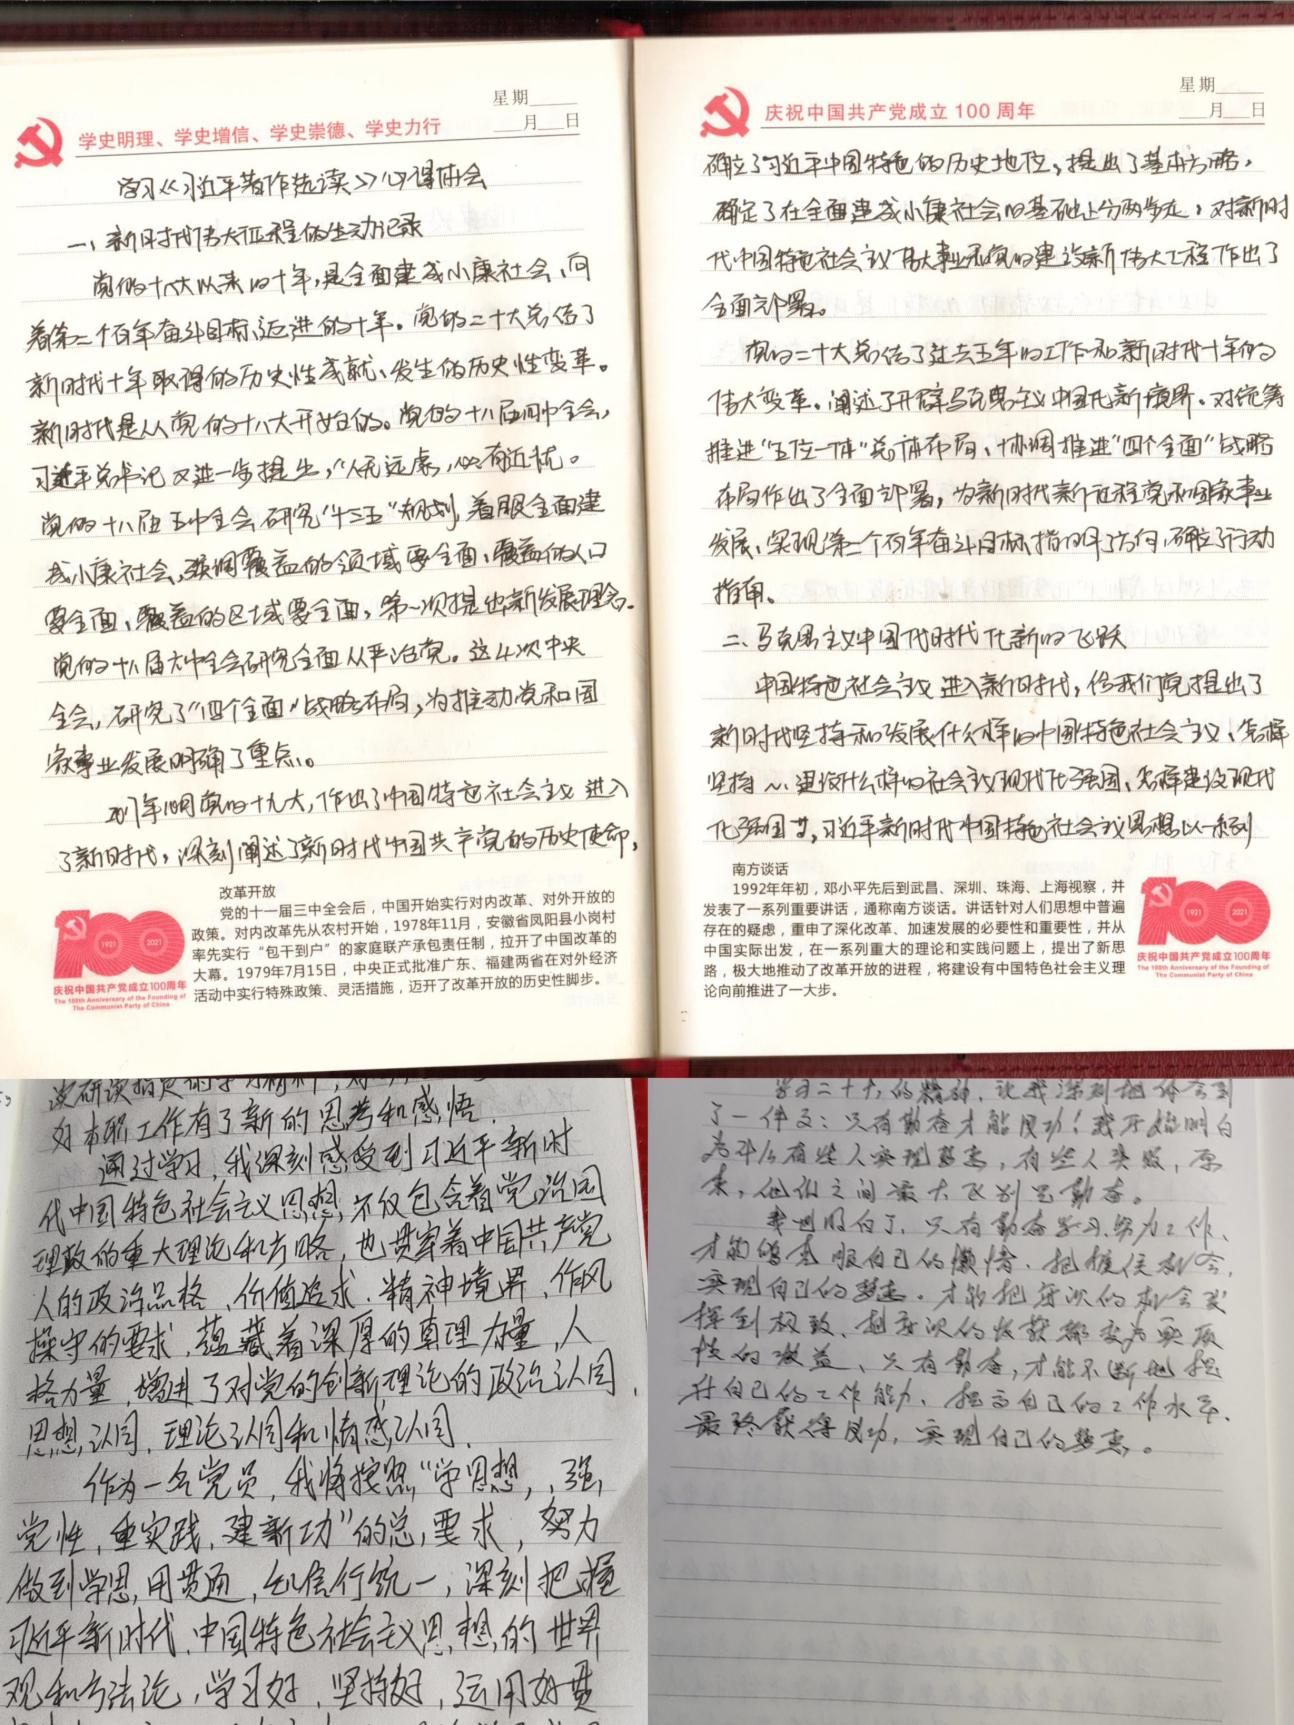 星期
月 日
学史明理、学史增信、学史崇德、学史力行
学习《习近平著作选读》心得体会
一、新时代伟大征程的生动记录
党的十八大以来的十年,是全面建成小康社会、向
着第二个百年奋斗目标迈进的十年。党的二十大总结了
新时代十年取得的历史性成就、发生的历史性变革。
新时代是从党的十八大开始的。党的十八届四中全会,
习近平总书记又进一步提出,“人无远虑,必有近忧。
党的十八届五中全会研究“十三五”规划,着眼全面建
成小康社会,强调覆盖的领域要全面、覆盖的人口
要全面、覆盖的区域要全面,第一次提出新发展理念。
党的十八届六中全会研究全面从严治党。这4次中央
全会,研究了“四个全面”战略布局,为推动党和国
家事业发展明确了重点。
2017年10月党的十九大,作出了中国特色社会主义进入
了新时代,深刻阐述了新时代中国共产党的历史使命,
改革开放
党的十一届三中全会后,中国开始实行对内改革、对外开放的
政策。对内改革先从农村开始,1978年11月,安徽省凤阳县小岗村
率先实行“包干到户”的家庭联产承包责任制,拉开了中国改革的
大幕。1979年7月15日,中央正式批准广东、福建两省在对外经济
活动中实行特殊政策、灵活措施,迈开了改革开放的历史性脚步。
100
1921 2021
庆祝中国共产党成立100周年
The 100th Anniversary of the Founding of
The Communist Party of China
星期
月 日
庆祝中国共产党成立 100 周年
确立了习近平中国特色的历史地位,提出了基本方略,
确定了在全面建成小康社会的基础上分两步走,对新时
代中国特色社会主义伟大事业和党的建设新伟大工程作出了
全面部署。
党的二十大总结了过去五年的工作和新时代十年的
伟大变革。阐述了开辟马克思主义中国化新境界。对统筹
推进“五位一体”总体布局、协调推进“四个全面”战略
布局作出了全面部署,为新时代新征程党和国家事业
发展、实现第二个百年奋斗目标指明了方向,确立了行动
指南。
二、马克思主义中国化时代化新的飞跃
中国特色社会主义进入新时代,给我们党提出了
新时代坚持和发展什么样的中国特色社会主义、怎样
坚持~、建设什么样的社会主义现代化强国、怎样建设现代
化强国等,习近平新时代中国特色社会主义思想以一系列
南方谈话
1992年年初,邓小平先后到武昌、深圳、珠海、上海视察,并
发表了一系列重要讲话,通称南方谈话。讲话针对人们思想中普遍
存在的疑虑,重申了深化改革、加速发展的必要性和重要性,并从
中国实际出发,在一系列重大的理论和实践问题上,提出了新思
路,极大地推动了改革开放的进程,将建设有中国特色社会主义理
论向前推进了一大步。
100
1921 2021
庆祝中国共产党成立100周年
The 100th Anniversary of the Founding of
The Communist Party of China
对本职工作有了新的思考和感悟.
通过学习,我深刻感受到习近平新时
代中国特色社会主义思想,不仅包含着党治国
理政的重大理论和方略,也贯穿着中国共产党
人的政治品格、价值追求.精神境界、作风
操守的要求,蕴藏着深厚的真理力量,人
格力量,增进了对党的创新理论的政治认同,
思想认同,理论认同和情感认同.
作为一名党员,我将按照“学思想,强
党性,重实践,建新功”的总要求,努力
做到学思用贯通,知信行统一,深刻把握
习近平新时代中国特色社会主义思想的世界
观和方法论,学习好,坚持好,运用好贯
学习二十大的精神,让我深刻地体会到
了一件事:只有勤奋才能成功!我开始明白
为什么有些人实现梦想,有些人失败,原
来,他们之间最大区别是勤奋。
我也明白了,只有勤奋学习,努力工作,
才能够克服自己的懒惰.把握住机会,
实现自己的梦想.才能把每次的机会发
挥到极致、把每次的收获都变为实质
性的收益、只有勤奋,才能不断地提
升自己的工作能力、提高自己的工作水平,
最终获得成功,实现自己的梦想。